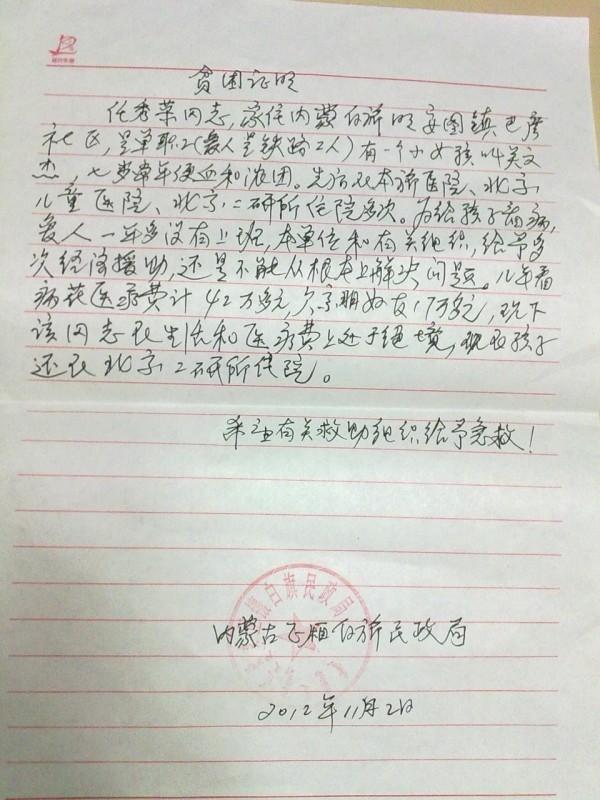 贫困证明
任秀荣同志,家住内蒙白旗明安图镇巴音
社区,是单职工(爱人是铁路工人)有一个小女孩叫关文
杰,七岁常年便血和浓团。先后在本旗医院、北京
儿童医院、北京二研所住院多次。为给孩子看病,
爱人一年多没有上班,本单位和有关组织,给予多
次经济援助,还是不能从根本上解决问题。几年看
病花医疗费计42万多元,欠亲朋好友17万多元,现下
该同志在生活和医疗费上处于绝境,现在孩子
还在北京二研所住院。
希望有关救助组织给予急救!
镶白旗民政局
内蒙古正镶白旗民政局
2012年11月2日